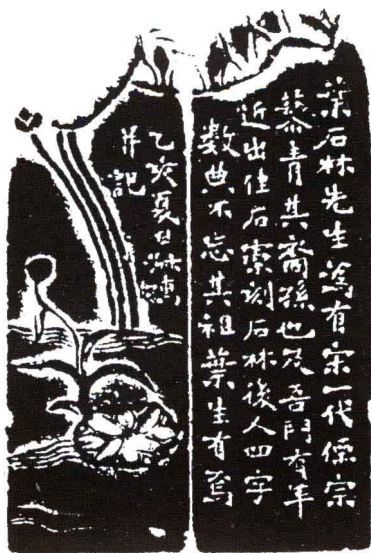 葉石林先生爲有宋一代儒宗
青其裔孫也及吾門有年
近出佳石索刻石林後人四字
數典不忘其祖葉生有焉
乙亥夏日
并記